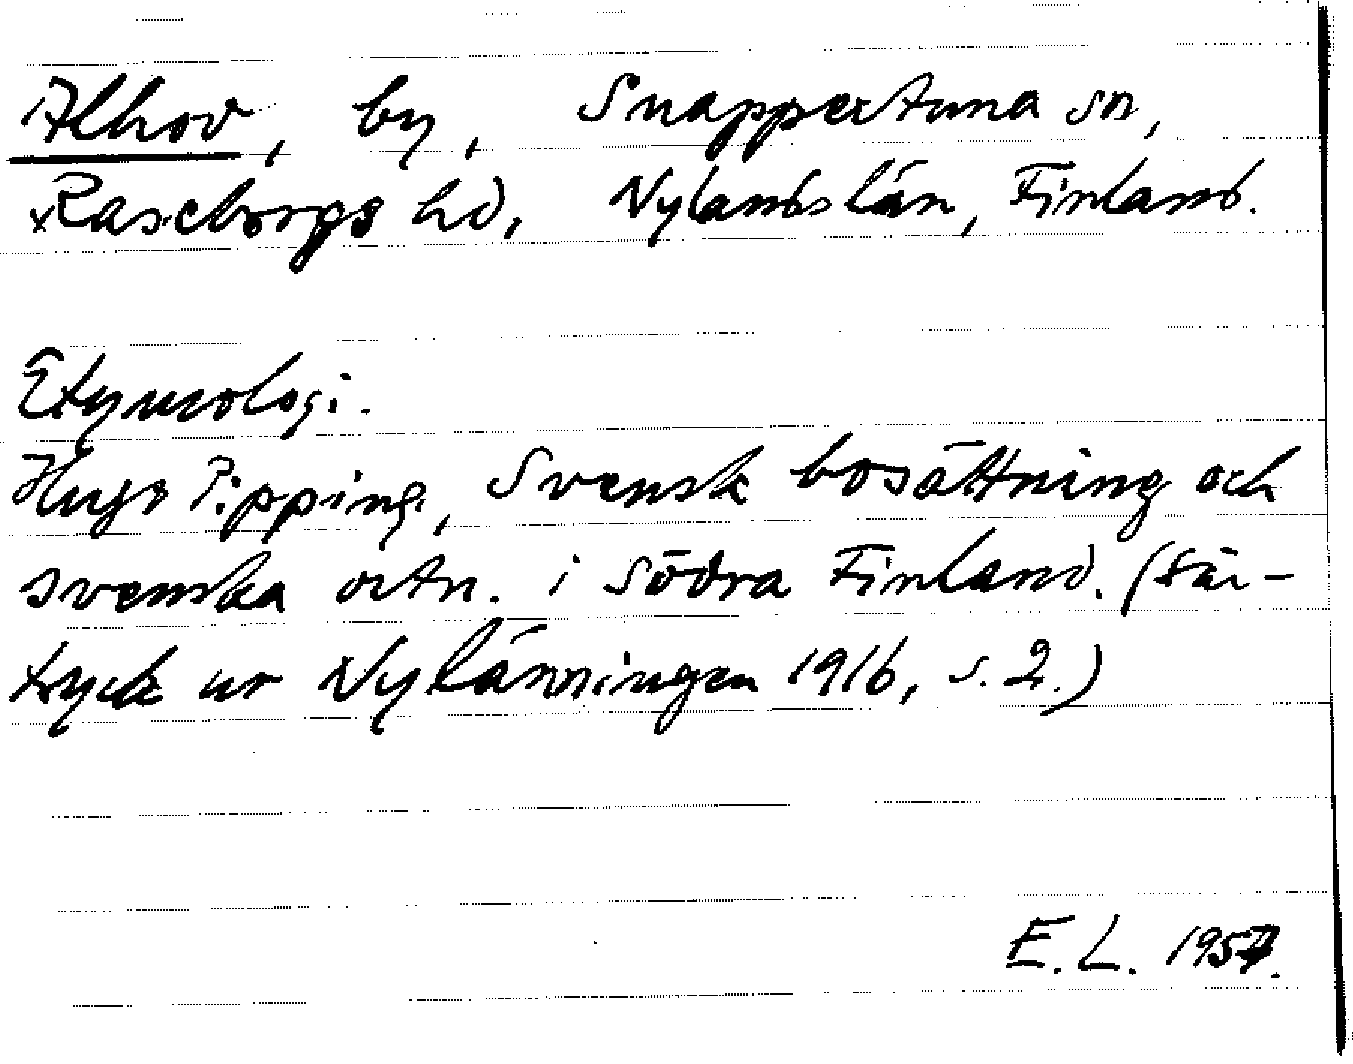 Alhov, by, Snappertuna sn,
Raseborgs hd, Nylandslän, Finland.
Etymologi.
Hugo Pipping, Svensk bosättning och
svenska ortn. i södra Finland. (Sär-
tryck ur Nylänningen 1916, s. 2.)
E. L. 1957.